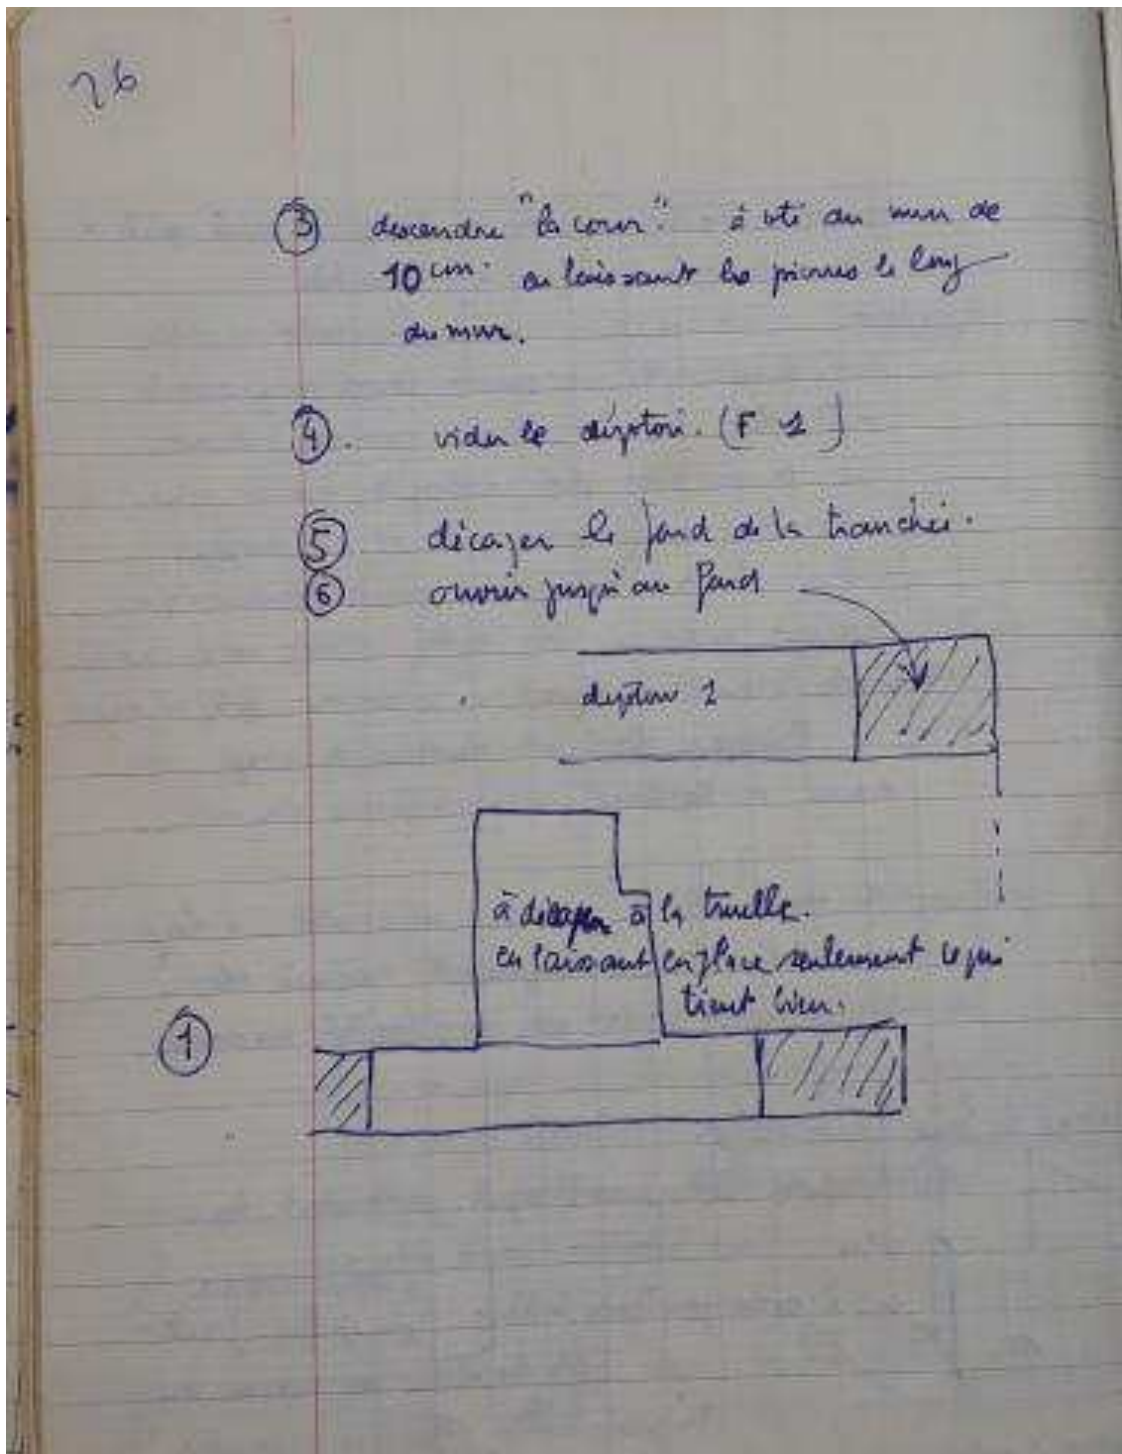 26
③ descendre "la cour". à côté du mur de
10 cm. en laissant les pierres le long
du mur.
④. vider le dépotoir. (F 1)
⑤ décaper le fond de la tranchée.
⑥ ouvrir jusqu'au fond
dépotoir 1
à décaper à la truelle.
en laissant en place seulement ce qui
tient bien.
①